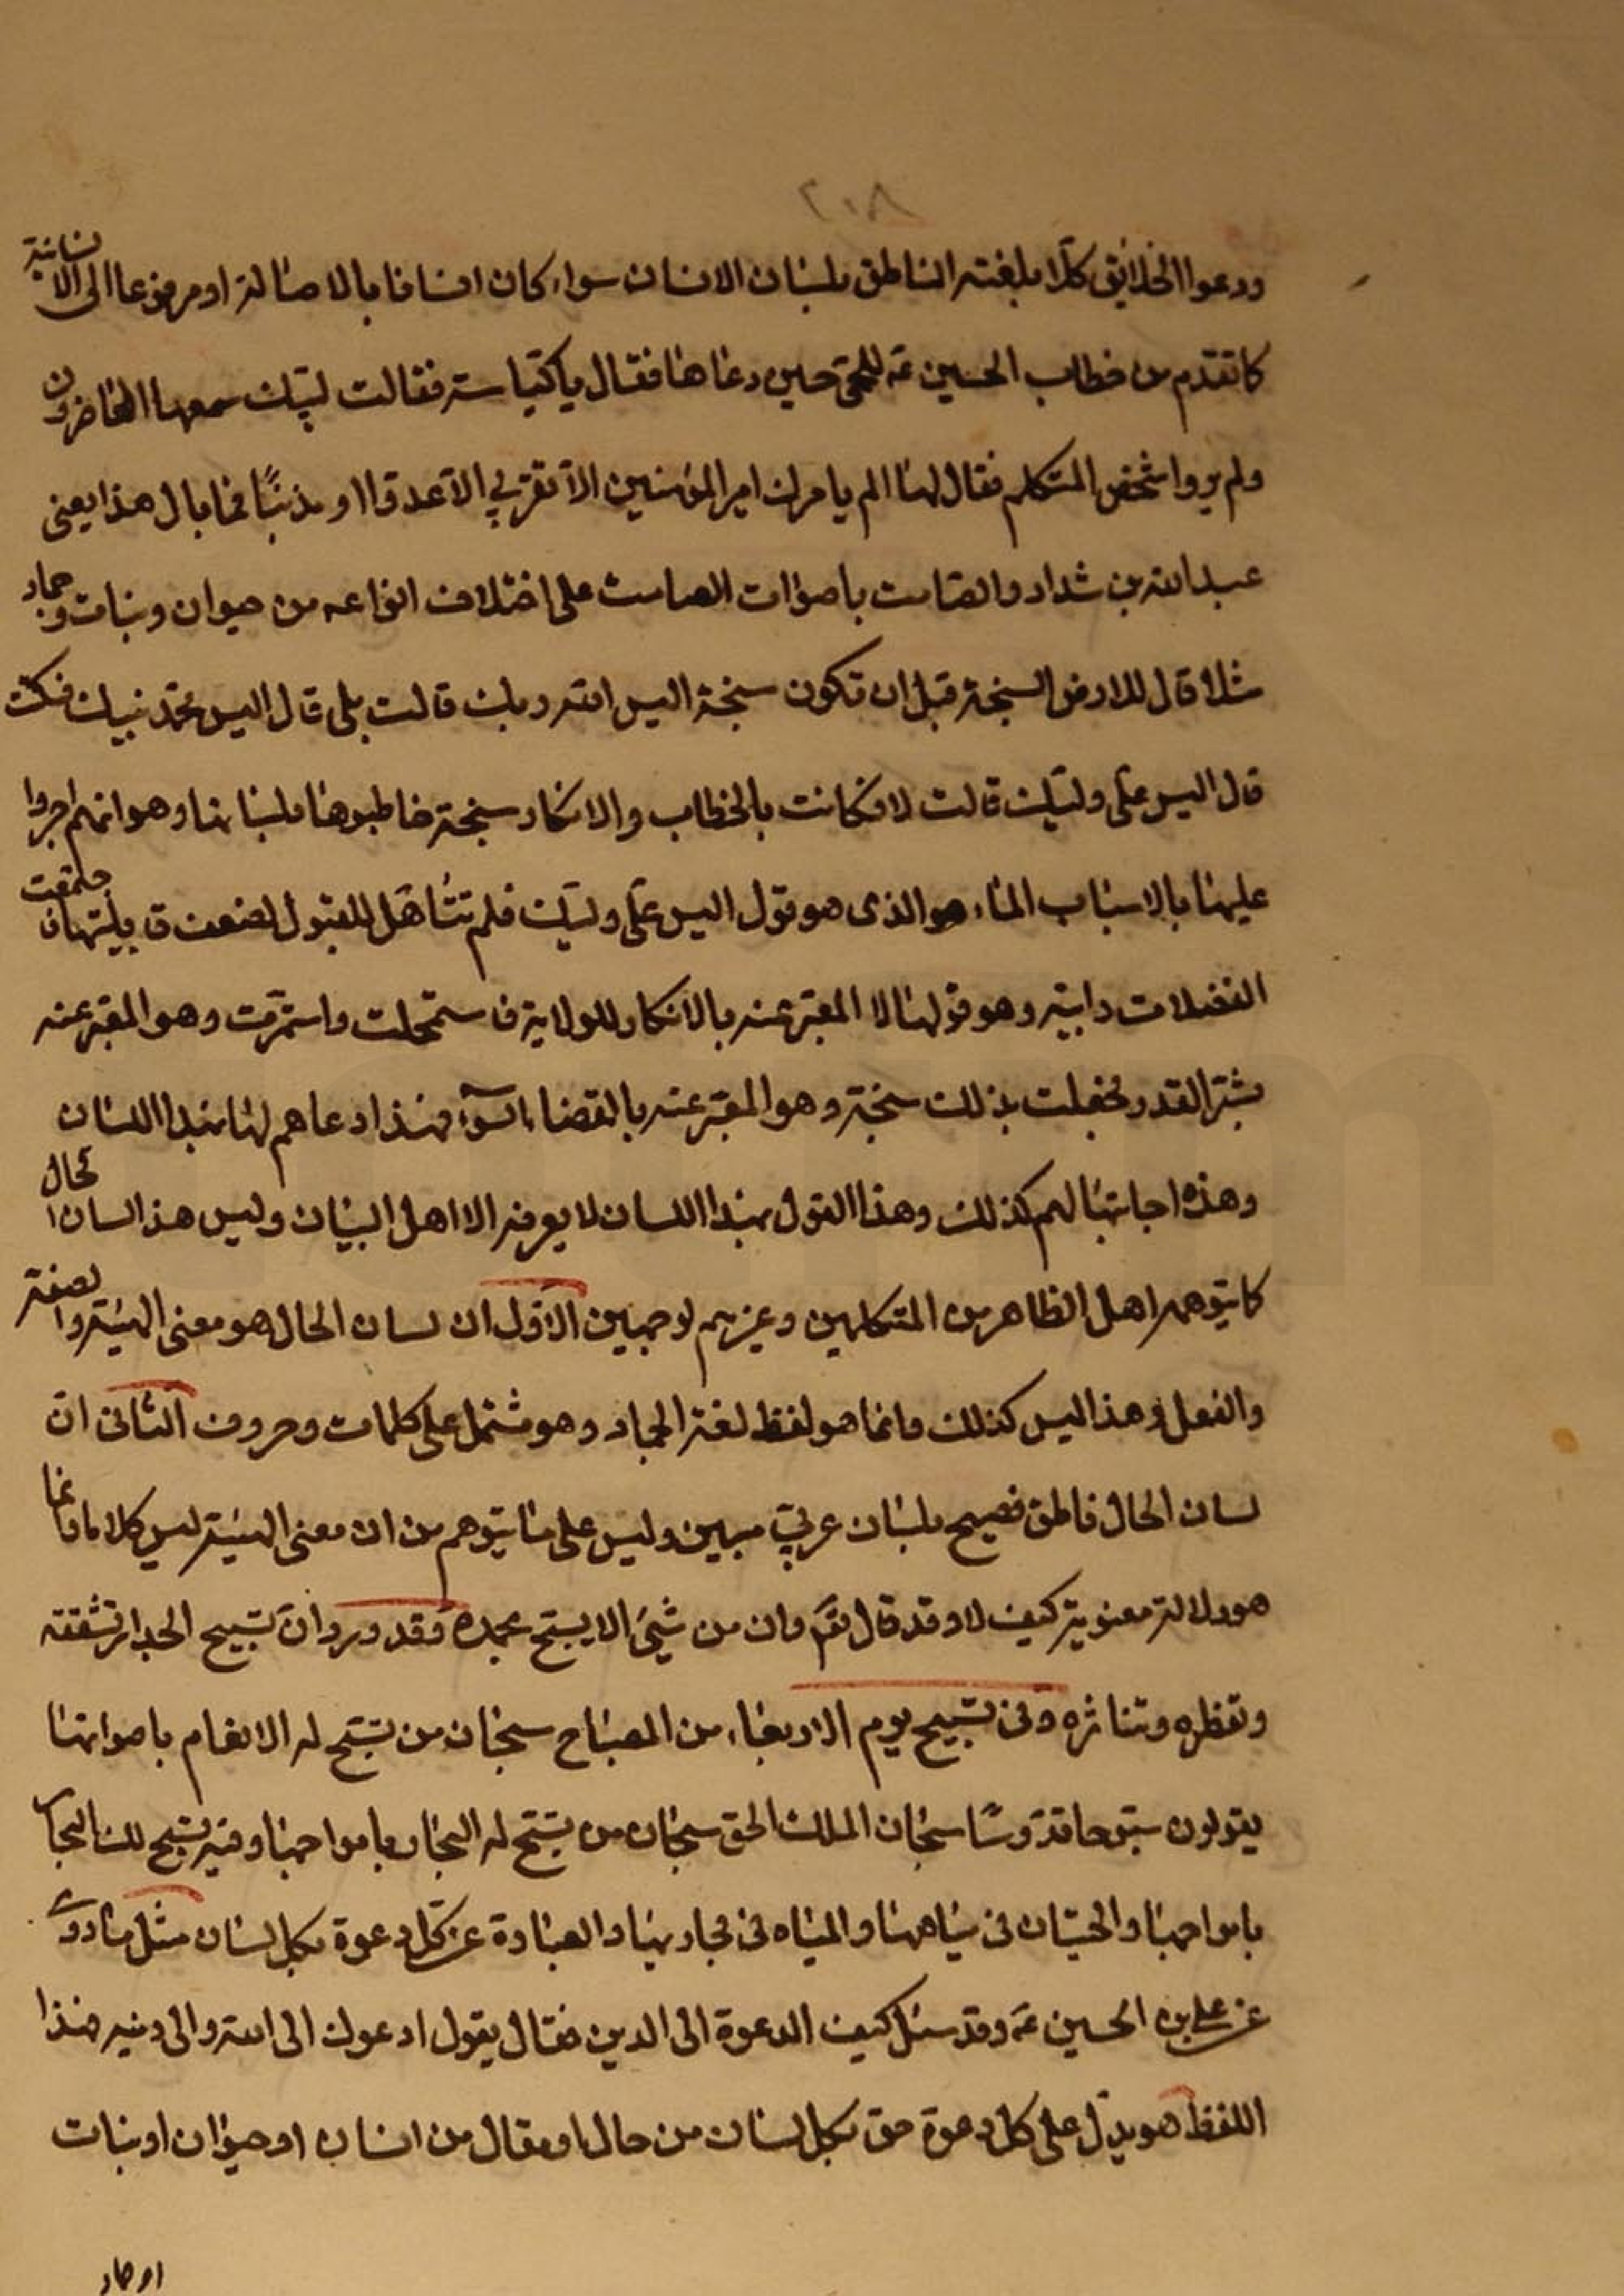 ٢٠٨
ودعوا الخلايق كلا بلغته الناطق بلسان الانسان سواء كان انسانا بالاصالة او مرفوعا الى الانسانية
كما تقدم من خطاب الحسين عم للحمى حين دعاها فقال يا كباسة فقالت لبيك سمعها الحاضرون
ولم يروا شخص المتكلم فقال لها الم يامرك امير المؤمنين الا تقربي الا عدوا او مذنبا فما بال هذا يعني
عبد الله بن شداد والصامت باصوات الصامت على اختلاف انواعه من حيوان ونبات وجماد
مثلا قال للارض السبخة قبل ان تكون سبخة اليس الله ربك قالت بلى قال اليس محمد نبيك فسكتت
قال اليس علي وليك قالت لا فكانت بالخطاب والانكار سبخة خاطبوها بلسانها وهو انهم اجروا
عليها بالاسباب الماء هو الذى هو قول اليس علي وليك فلم تتاهل للقبول لضعف قابليتها فاجتمعت
الفضلات دابته وهو قولها لا المعبر عنه بالانكار للولاية فاستحلت واستمرت وهو المعبر عنه
بشر القدر فجعلت بذلك سبخة وهو المعبر عنه بالقضاء السوء فهذا دعاهم لها بهذا اللسان
وهذه اجابتها لهم كذلك وهذا القول بهذا اللسان لا يعرفه الا اهل البيان وليس هذا لسان الحال
كما يتوهمه اهل الظاهر من المتكلمين وغيرهم لوجهين الاول ان لسان الحال هو معنى الهيئة والصفة
والفعل وهذا ليس كذلك وانما هو لفظ لغة الجماد وهو مشتمل على كلمات وحروف الثانى ان
لسان الحال ناطق فصيح بلسان عربي مبين وليس على ما يتوهم من ان معنى الهيئة ليس كلاما وانما
هو دلالة معنوية كيف لا وقد قال تعم وان من شيئ الا يسبح بحمده وقد ورد ان تسبيح الجدار تشققه
وتفطره وتناثره وفى تسبيح يوم الاربعاء من المصباح سبحان من تسبح له الانعام باصواتها
يقولون سبوحا قدوسا سبحان الملك الحق سبحان من تسبح له البحار بامواجها وفيه تسبح لك البحار
بامواجها والحيتان فى مياهها والمياه فى مجاريها والعبادة عن كل دعوة بكل لسان مثل ما روى
عن على بن الحسين عم وقد سئل كيف الدعوة الى الدين فقال يقول ادعوك الى الله والى دينه فهذا
اللفظ هو يدل على كل دعوة حق بكل لسان من حال او مقال من انسان او حيوان او نبات
او جماد